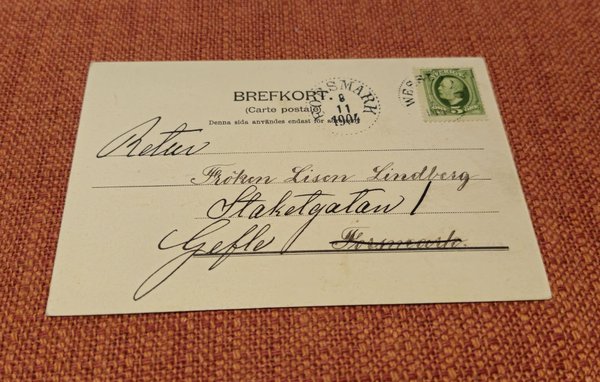 BREFKORT
(Carte postale)
Denna sida användes endast för
FORSMARK
8
11
1904
WES
SVERIGE
Retur
Fröken Lisen Lindberg
Staketgatan 1
Gefle Forsmark.